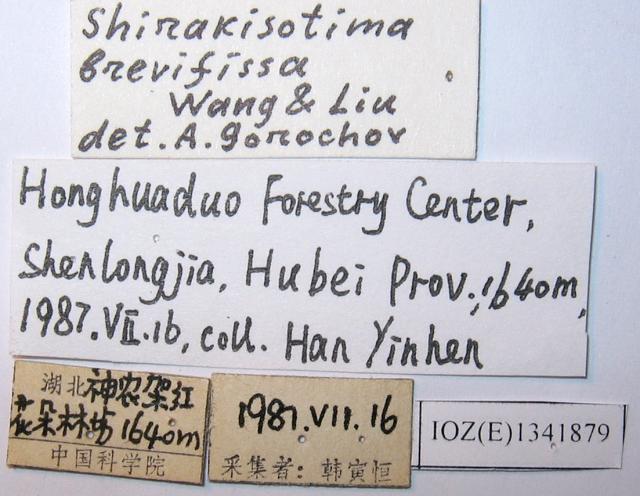 Shirakisotima
brevifissa
Wang & Liu
det. A. Gorochov
Honghuaduo Forestry Center,
Shenlongjia, Hubei Prov., 1640m,
1987.VII.16, coll. Han Yinhen
湖北神农架红
花朵林场1640m
中国科学院
1987.VII.16
采集者：韩寅恒
IOZ(E)1341879